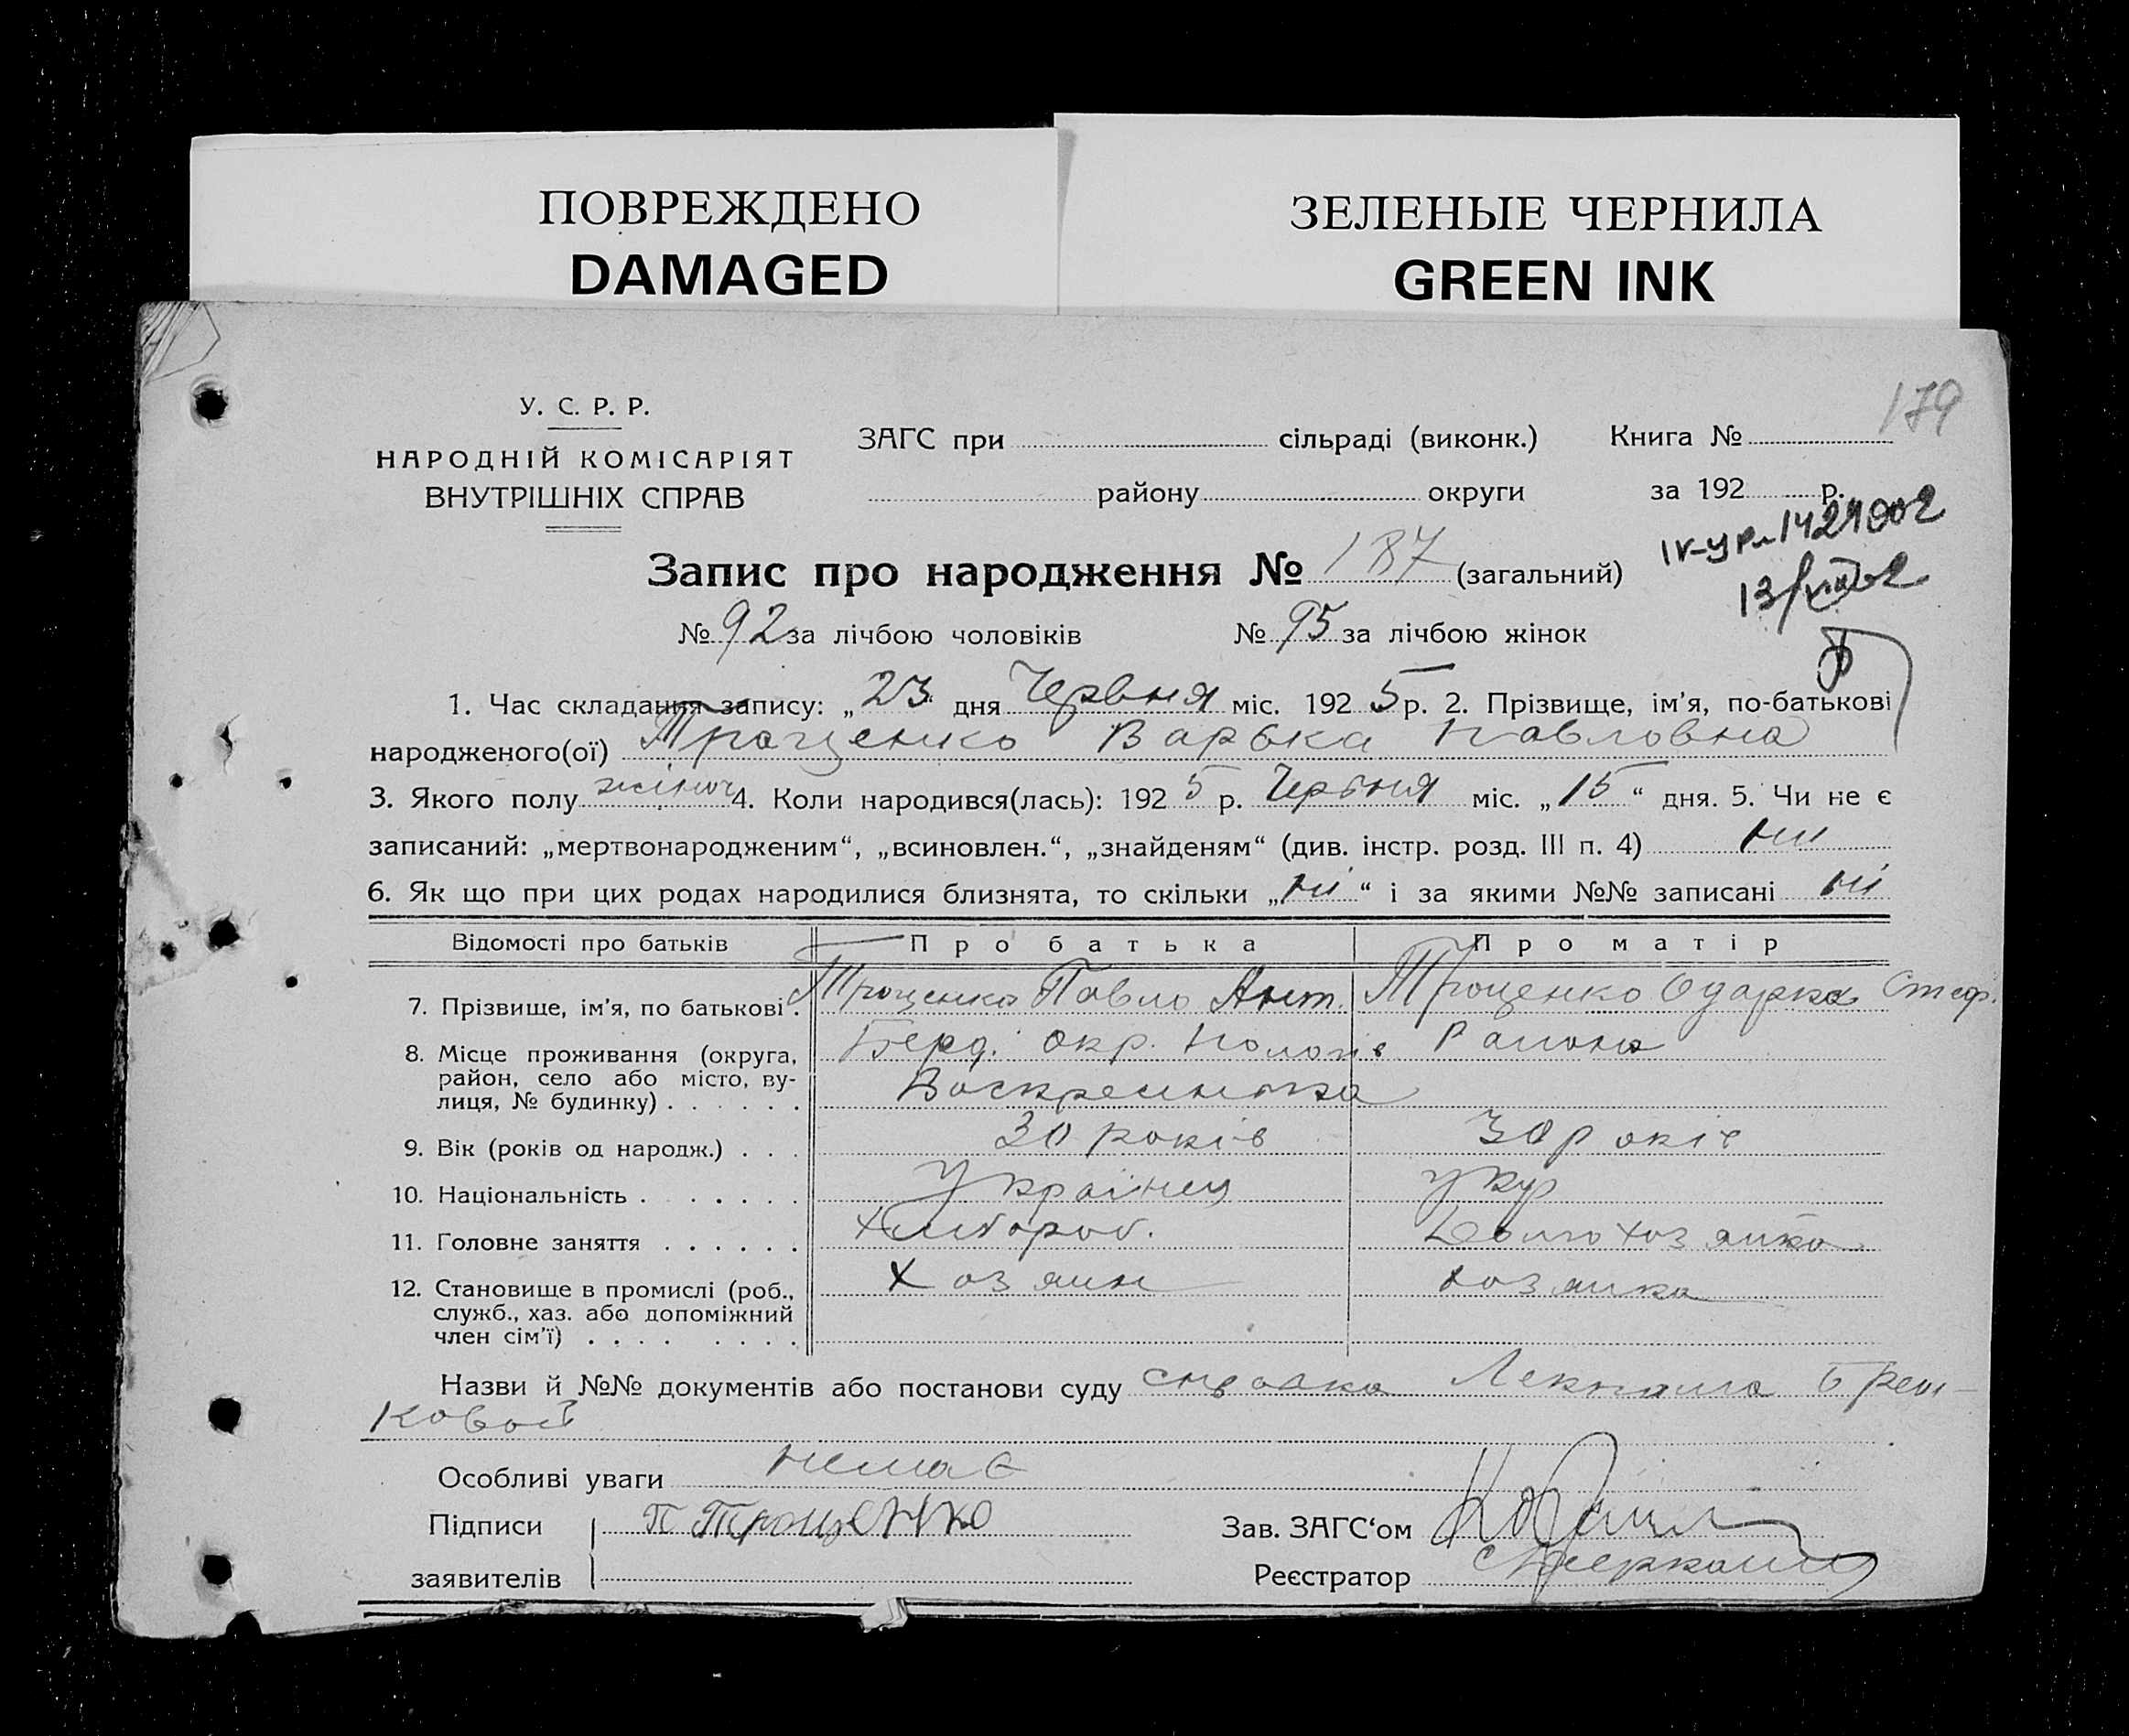 ПОВРЕЖДЕНО
DAMAGED
ЗЕЛЕНЫЕ ЧЕРНИЛА
GREEN INK
179
У. С. Р. Р.
НАРОДНІЙ КОМІСАРІЯТ
ВНУТРІШНІХ СПРАВ
ЗАГС при сільраді (виконк.) Книга №
району округи за 192 р.
Запис про народження № 187 (загальний)
№ 92 за лічбою чоловіків № 95 за лічбою жінок
1. Час складання запису: „23" дня Червня міс. 1925 р. 2. Прізвище, ім'я, по-батькові
народженого(ої) Троценко Варька Павловна
3. Якого полу жіноч 4. Коли народився(лась): 1925 р. Червня міс. „15“ дня. 5. Чи не є
записаний: „мертвонародженим“, „всиновлен.“, „знайденям“ (див. інстр. розд. III п. 4) ни
6. Як що при цих родах народилися близнята, то скільки „ні“ і за якими №№ записані ні
Відомості про батьків Про батька Про матір
7. Прізвище, ім'я, по батькові. Троценко Павло Ант. Троценко Одарка Стеф.
8. Місце проживання (округа, район, село або місто, вулиця, № будинку) Берд. окр. Пологів Района
Воскресинька
9. Вік (років од народж.) 30 років 30 років
10. Національність Українец укр
11. Головне заняття Хлибороб. Домохозяйка
12. Становище в промислі (роб., служб., хаз. або допоміжний член сім'ї) Хозяин хозяйка
Назви й №№ документів або постанови суду справка Лекпома Береш-
ковой
Особливі уваги немає
Підписи П Троценко Зав. ЗАГС'ом
заявителів Реєстратор